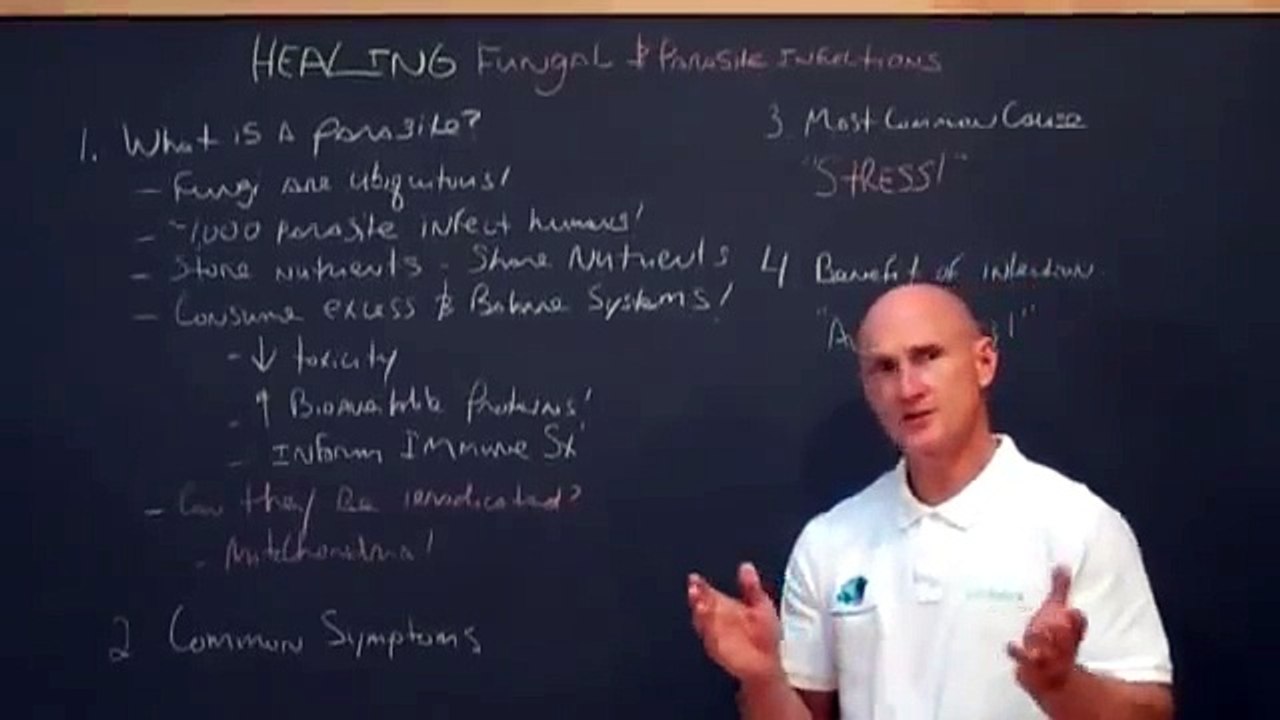 HEALING Fungal & Parasite Infections
1. What is a parasite?
- Fungi are ubiquitous!
- ~1,000 parasite infect humans!
- Store nutrients - Share Nutrients
- Consume excess & Balance Systems!
- ↓ toxicity
- ↑ Bioavailable Proteins!
- Inform Immune Sx
- Can they be irradicated?
- Mitochondria!
2 Common Symptoms
3 Most Common Cause
"STRESS!"
4 Benefit of infection